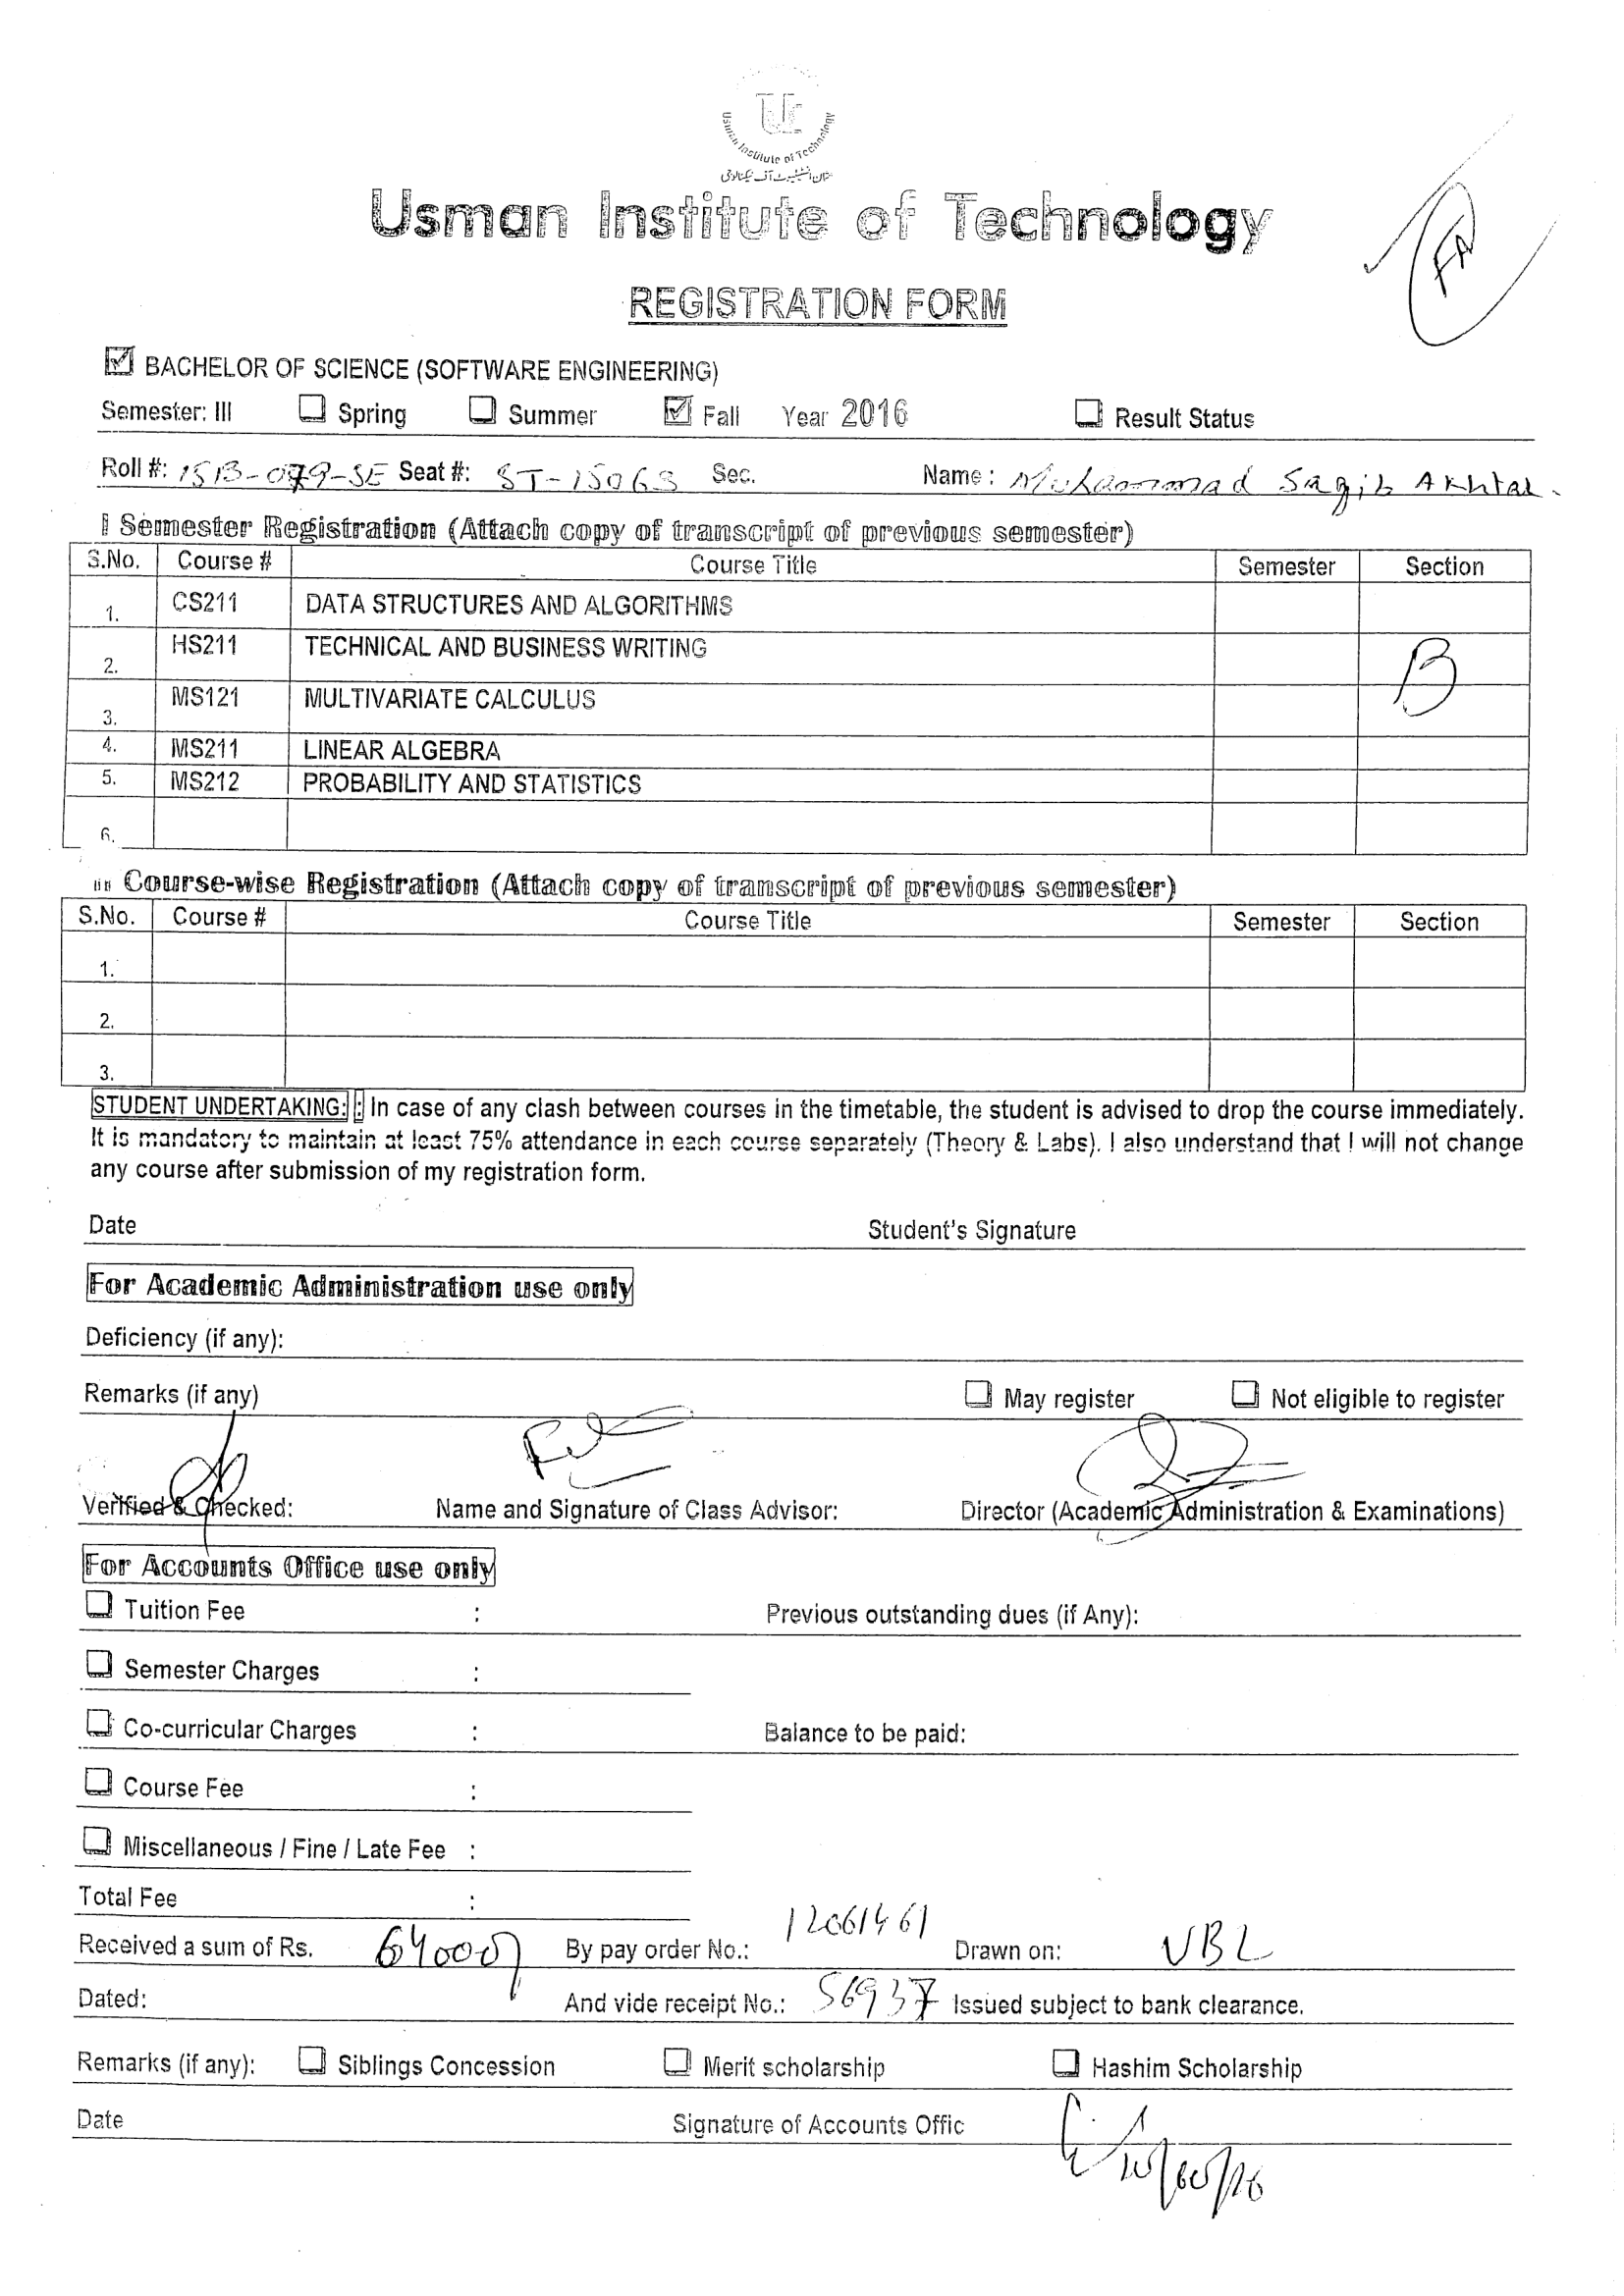 Usman Institute of Technology
Usman Institute of Technology
REGISTRATION FORM
FA
BACHELOR OF SCIENCE (SOFTWARE ENGINEERING)
Semester: III Spring Summer Fall Year 2016 Result Status
Roll #: 15B-079-SE Seat #: ST-15063 Sec. Name : Muhammad Saqib Akhtar.
I Semester Registration (Attach copy of transcript of previous semester)
S.No. Course # Course Title Semester Section
1. CS211 DATA STRUCTURES AND ALGORITHMS
2. HS211 TECHNICAL AND BUSINESS WRITING B
3. MS121 MULTIVARIATE CALCULUS
4. MS211 LINEAR ALGEBRA
5. MS212 PROBABILITY AND STATISTICS
6.
Course-wise Registration (Attach copy of transcript of previous semester)
S.No. Course # Course Title Semester Section
1.
2.
3.
STUDENT UNDERTAKING: : In case of any clash between courses in the timetable, the student is advised to drop the course immediately.
It is mandatory to maintain at least 75% attendance in each course separately (Theory & Labs). I also understand that I will not change
any course after submission of my registration form.
Date Student's Signature
For Academic Administration use only
Deficiency (if any):
Remarks (if any) May register Not eligible to register
Verified & Checked: Name and Signature of Class Advisor: Director (Academic Administration & Examinations)
For Accounts Office use only
Tuition Fee : Previous outstanding dues (if Any):
Semester Charges :
Co-curricular Charges : Balance to be paid:
Course Fee :
Miscellaneous / Fine / Late Fee :
Total Fee :
Received a sum of Rs. 64000 By pay order No.: 12061461 Drawn on: UBL
Dated: And vide receipt No.: 56937 Issued subject to bank clearance.
Remarks (if any): Siblings Concession Merit scholarship Hashim Scholarship
Date Signature of Accounts Offic